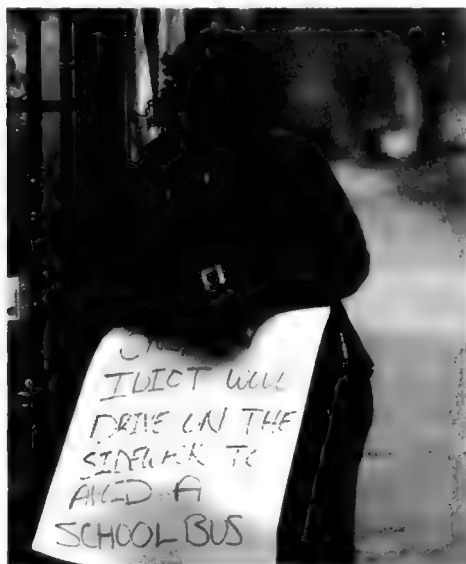 IDIOT WILL
DRIVE ON THE
SIDEWALK TO
AVOID A
SCHOOL BUS